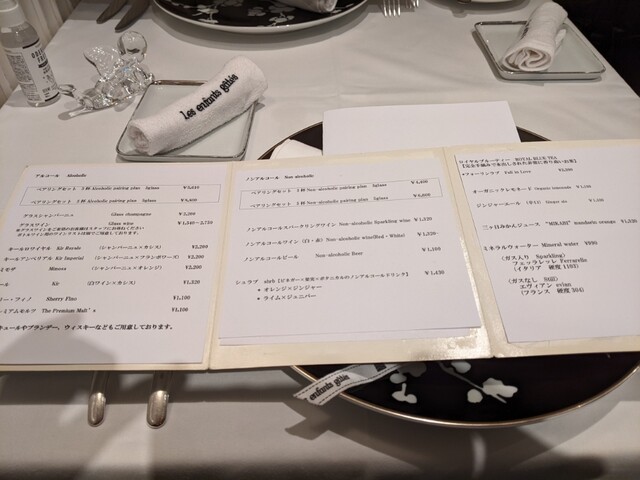 Les enfants gâtés
アルコール Alcoholic
ペアリングセット 3杯 Alcoholic pairing plan 3glass
ペアリングセット 5杯 Alcoholic pairing plan 5glass
グラスシャンパーニュ Glass champagne
グラスワイン Glass wine
キールロワイヤル Kir Royale (シャンパーニュ×カシス) ¥2,200
キールアンペリアル Kir Imperial (シャンパーニュ×フランボワーズ) ¥2,200
モザ Mimosa (シャンパーニュ×オレンジ) ¥2,200
ール Kir (白ワイン×カシス) ¥1,320
リー・フィノ Sherry Fino ¥1,100
ミアムモルツ The Premium Malt's ¥1,100
キュールやブランデー、ウィスキーなどもご用意しております。
ノンアルコール Non-alcoholic
ペアリングセット 3杯 Non-alcoholic pairing plan 3glass ¥4,400
ペアリングセット 5杯 Non-alcoholic pairing plan 5glass ¥6,600
ノンアルコールスパークリングワイン Non-alcoholic Sparkling wine ¥1,320
ノンアルコールワイン (白・赤) Non-alcoholic wine(Red・White) ¥1,320
ノンアルコールビール Non-alcoholic Beer ¥1,100
シュラブ [ビネガー×果実×ボタニカルのノンアルコールドリンク] ¥1,430
● オレンジ×ジンジャー
● ライム×ジュニパー
ロイヤルブルーティー ROYAL BLUE TEA
●フォーリンラブ Fall in Love
オーガニックレモネード Organic lemonade
ジンジャーエール (辛口) Ginger ale
三ヶ日みかんジュース "MIKABI" mandarin orange
ミネラルウォーター Mineral water ¥990
〈ガス入り Sparkling〉
フェッラレッレ Ferrarelle
(イタリア 硬度 1103)
〈ガスなし Still〉
エヴィアン evian
(フランス 硬度 304)
enfants gâtés